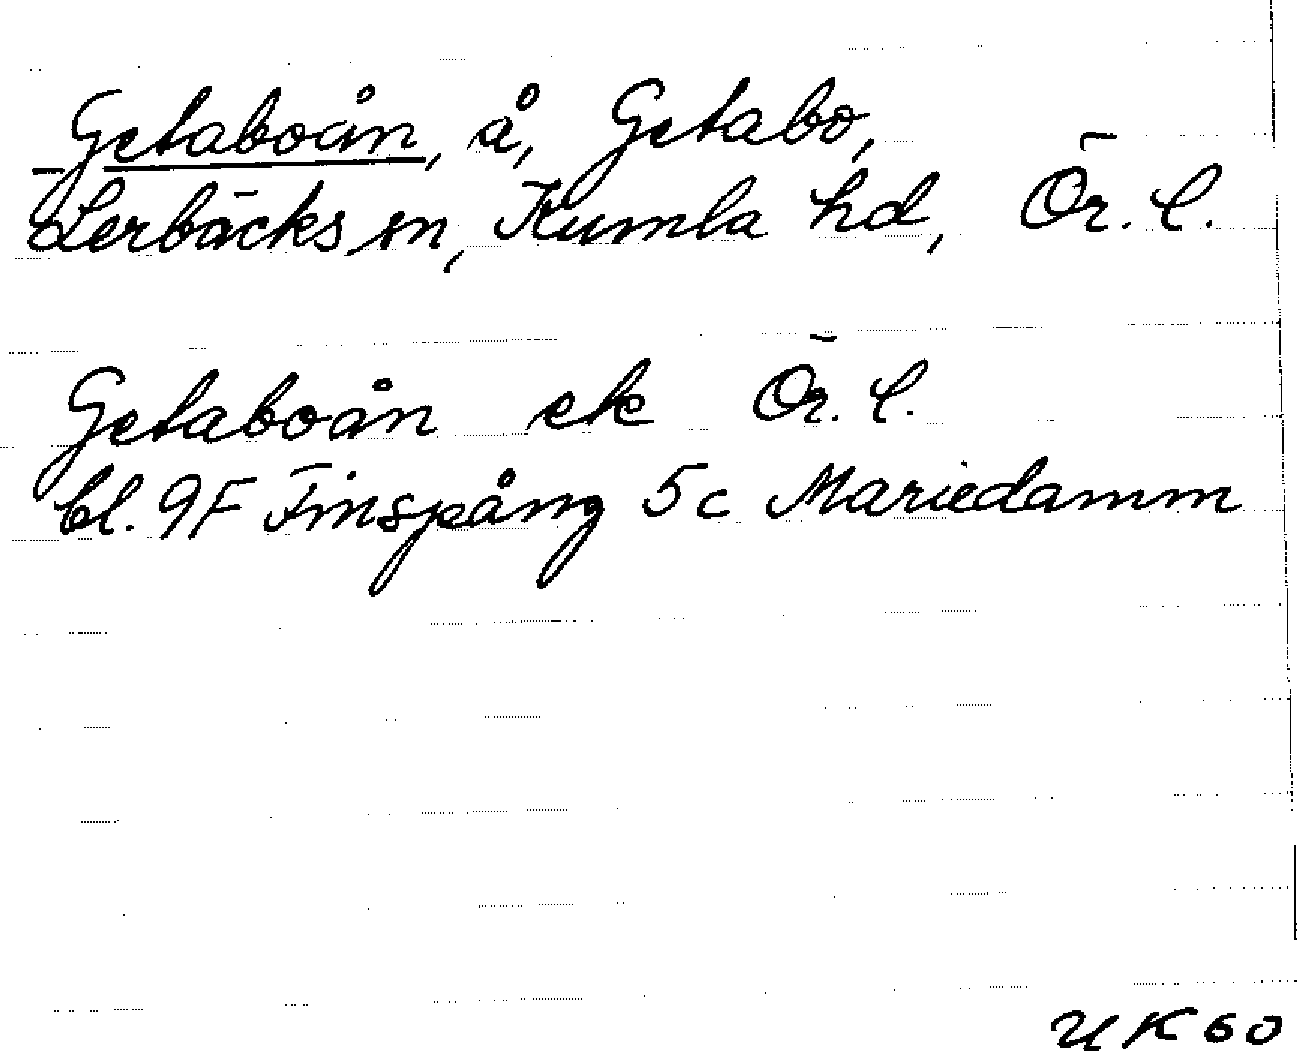 Getaboån, å, Getabo,
Lerbäcks sn, Kumla hd, Ör. l.
Getaboån ek Ör. l.
bl. 9F Finspång 5c Mariedamm
UK60